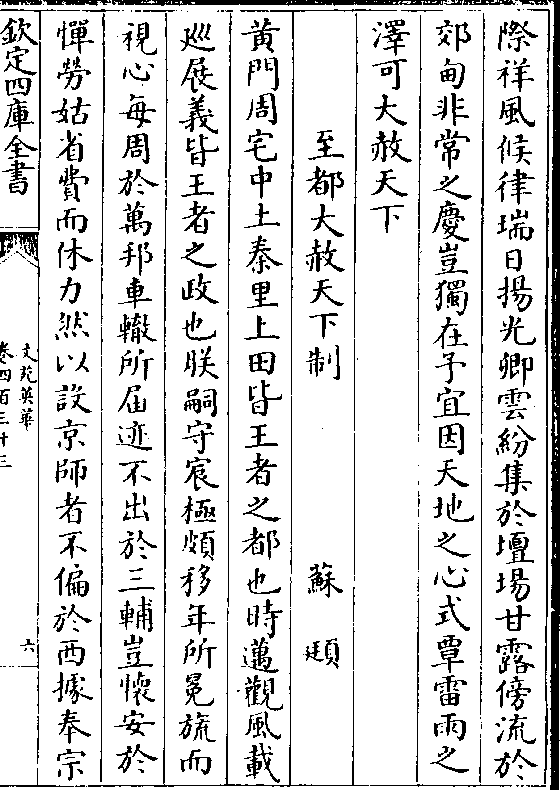 際祥風候律瑞日揚光卿雲紛集於壇場甘露傍流於
郊甸非常之慶豈獨在予宜因天地之心式覃雷雨之
澤可大赦天下
至都大赦天下制 蘇頲
黄門周宅中土秦里上田皆王者之都也時邁觀風載
廵展義皆王者之政也朕嗣守宸極頗移年所冕旒而
視心每周於萬邦車轍所届迹不出於三輔豈懷安於
憚勞姑省費而休力然以設京師者不偏於西據奉宗
欽定四庫全書
文苑英華
卷四百三十三
六